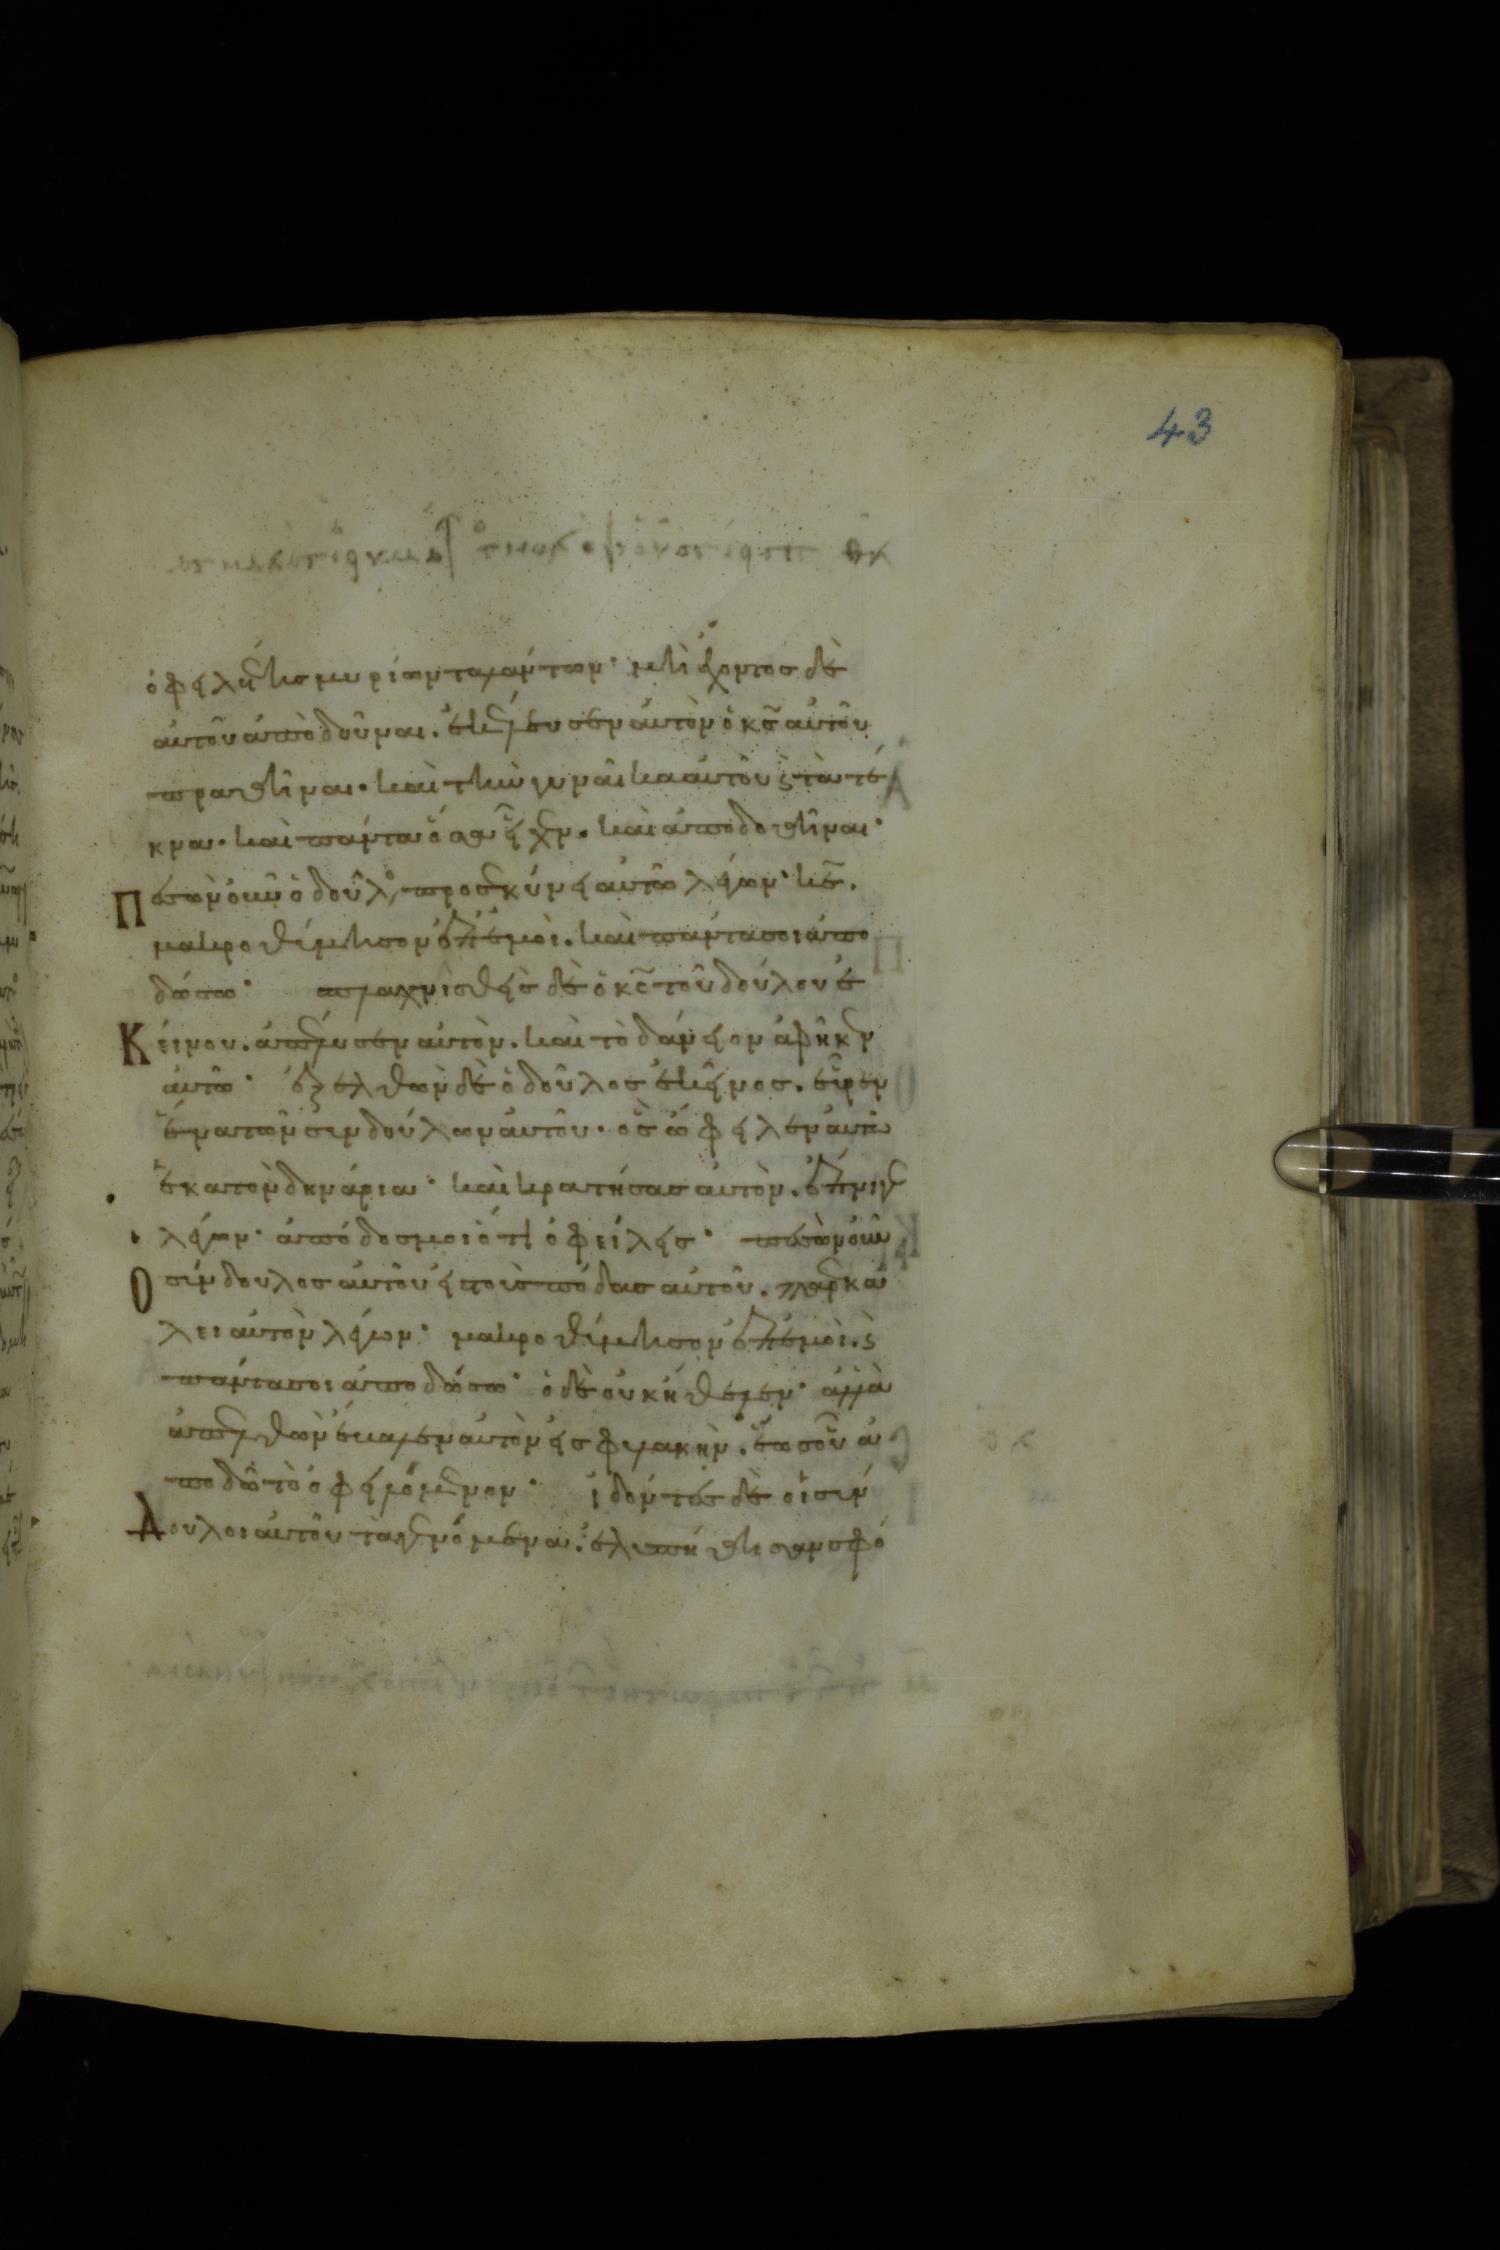 43
ὀφειλέτης μυρίων ταλάντων· μὴ ἔχοντος δὲ
αὐτοῦ ἀποδοῦναι. ἐκέλευσεν αὐτὸν ὁ κς̄ αὐτοῦ
πραθῆναι· καὶ τὴν γυναῖκα αὐτοῦ ϛ τὰ τέ
κνα· καὶ πάντα ὅσα εἶχεν. καὶ ἀποδοθῆναι·
Πεσὼν οὖν ὁ δοῦλος, προσεκύνει αὐτῶ λέγων· κε̄.
μακροθύμησον ἐπ' ἐμοὶ. καὶ πάντα σοι ἀπο
δώσω· σπλαχνισθεὶς δὲ ὁ κς̄ τοῦ δούλου ἐ
Κείνου. ἀπέλυσεν αὐτὸν. καὶ τὸ δάνειον ἀφῆκεν
αὐτῶ· ἐξελθὼν δὲ ὁ δοῦλος ἐκεῖνος. εὗρεν
ἕνα τῶν συνδούλων αὐτοῦ· ὃς ὤφειλεν αὐτῶ
ἑκατὸν δηνάρια· καὶ κρατήσας αὐτὸν. ἔπνιγεν
λέγων· ἀπόδος μοι ὅτι ὀφείλεις· πεσὼν οὖν
Ο σύνδουλος αὐτοῦ εἰς τοὺς πόδας αὐτοῦ. παρεκά
λει αὐτὸν λέγων· μακροθύμησον ἐπ' ἐμοὶ. ϛ
πάντα σοι ἀποδώσω· ὁ δὲ οὐκ ἤθελεν· ἀλλὰ
ἀπελθὼν ἔβαλεν αὐτὸν εἰς φυλακὴν. ἕως οὗ ἀ
ποδῶ τὸ ὀφειλόμενον· ἰδόντες δὲ οἱ σύν
Δουλοι αὐτοῦ τὰ γενόμενα. ἐλυπήθησαν σφό